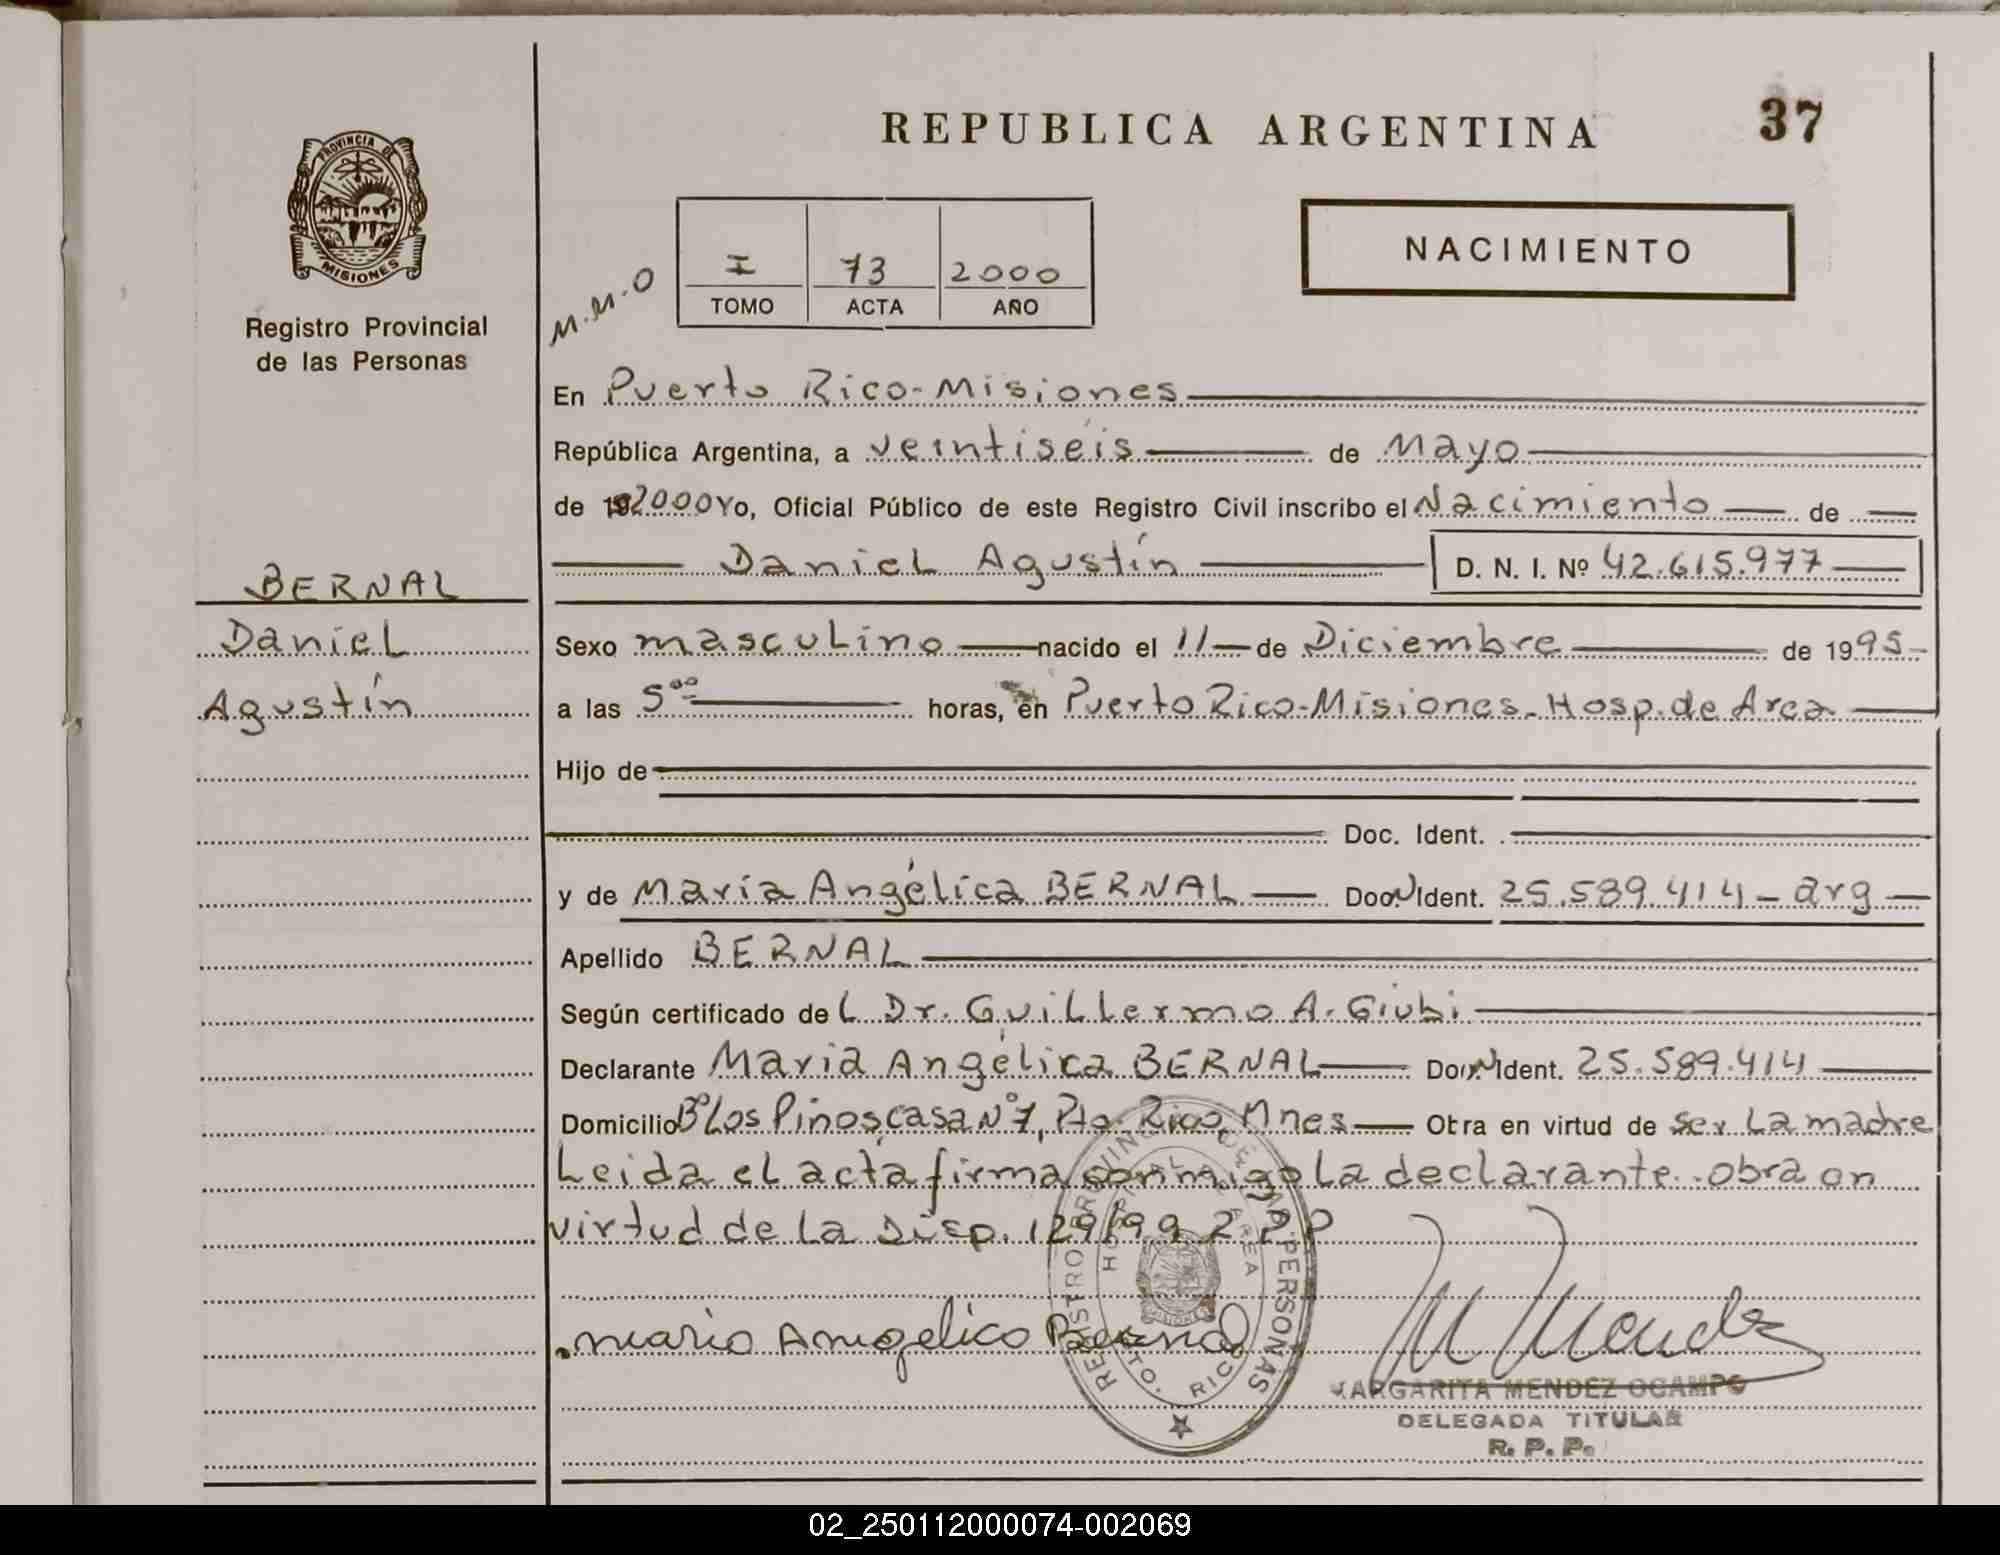 REPUBLICA ARGENTINA
37
PROVINCIA DE
MISIONES
Registro Provincial
de las Personas
M.M.O
I 73 2000
TOMO ACTA AÑO
NACIMIENTO
En Puerto Rico-Misiones
República Argentina, a veintiséis de Mayo
de 2000 Yo, Oficial Público de este Registro Civil inscribo el Nacimiento de
Daniel Agustín D. N. I. Nº 42.615.977
BERNAL
Daniel
Agustín
Sexo masculino nacido el 11 de Diciembre de 1995
a las 5ºº horas, en Puerto Rico-Misiones-Hosp. de Area
Hijo de
Doc. Ident.
y de María Angélica BERNAL Doc. Ident. 25.589.414 - arg
Apellido BERNAL
Según certificado del Dr. Guillermo A. Giubi
Declarante María Angélica BERNAL Doc. Ident. 25.589.414
Domicilio Bº Los Pinos, casa Nº 7, Pto. Rico, Mnes Obra en virtud de ser la madre
Leida el acta firma conmigo la declarante. obra en
virtud de la Disp. 129/99
Maria Angelica Bernal
REGISTRO PROVINCIAL DE LAS PERSONAS
HOSPITAL DE AREA
PTO. RICO
MISIONES
M Mendez
MARGARITA MENDEZ OCAMPO
DELEGADA TITULAR
R. P. P.
02_250112000074-002069